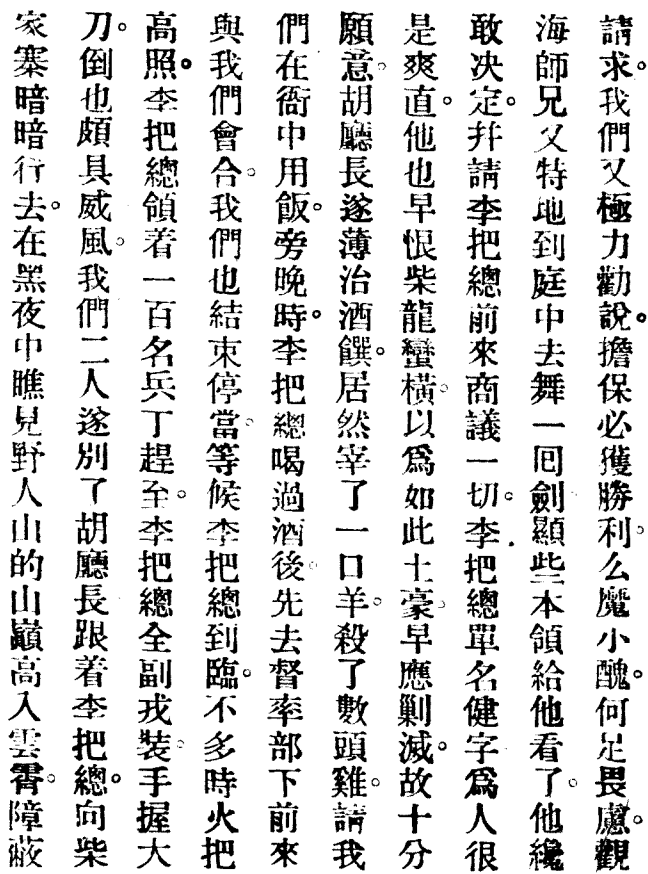 請求。我們又極力勸說。擔保必獲勝利。么魔小醜。何足畏慮。觀
海師兄又特地到庭中去舞一回劍顯些本領給他看了。他纔
敢决定。幷請李把總前來商議一切。李把總單名健字爲人很
是爽直。他也早恨柴龍蠻橫。以爲如此土豪。早應剿滅。故十分
願意。胡廳長遂薄治酒饌。居然宰了一口羊。殺了數頭雞。請我
們在衙中用飯。旁晚時。李把總喝過酒後。先去督率部下前來
與我們會合。我們也結束停當。等候李把總到臨。不多時火把
高照。李把總領着一百名兵丁趕至。李把總全副戎裝。手握大
刀。倒也頗具威風。我們二人遂別了胡廳長跟着李把總。向柴
家寨暗暗行去。在黑夜中瞧見野人山的山巔高入雲霄。障蔽